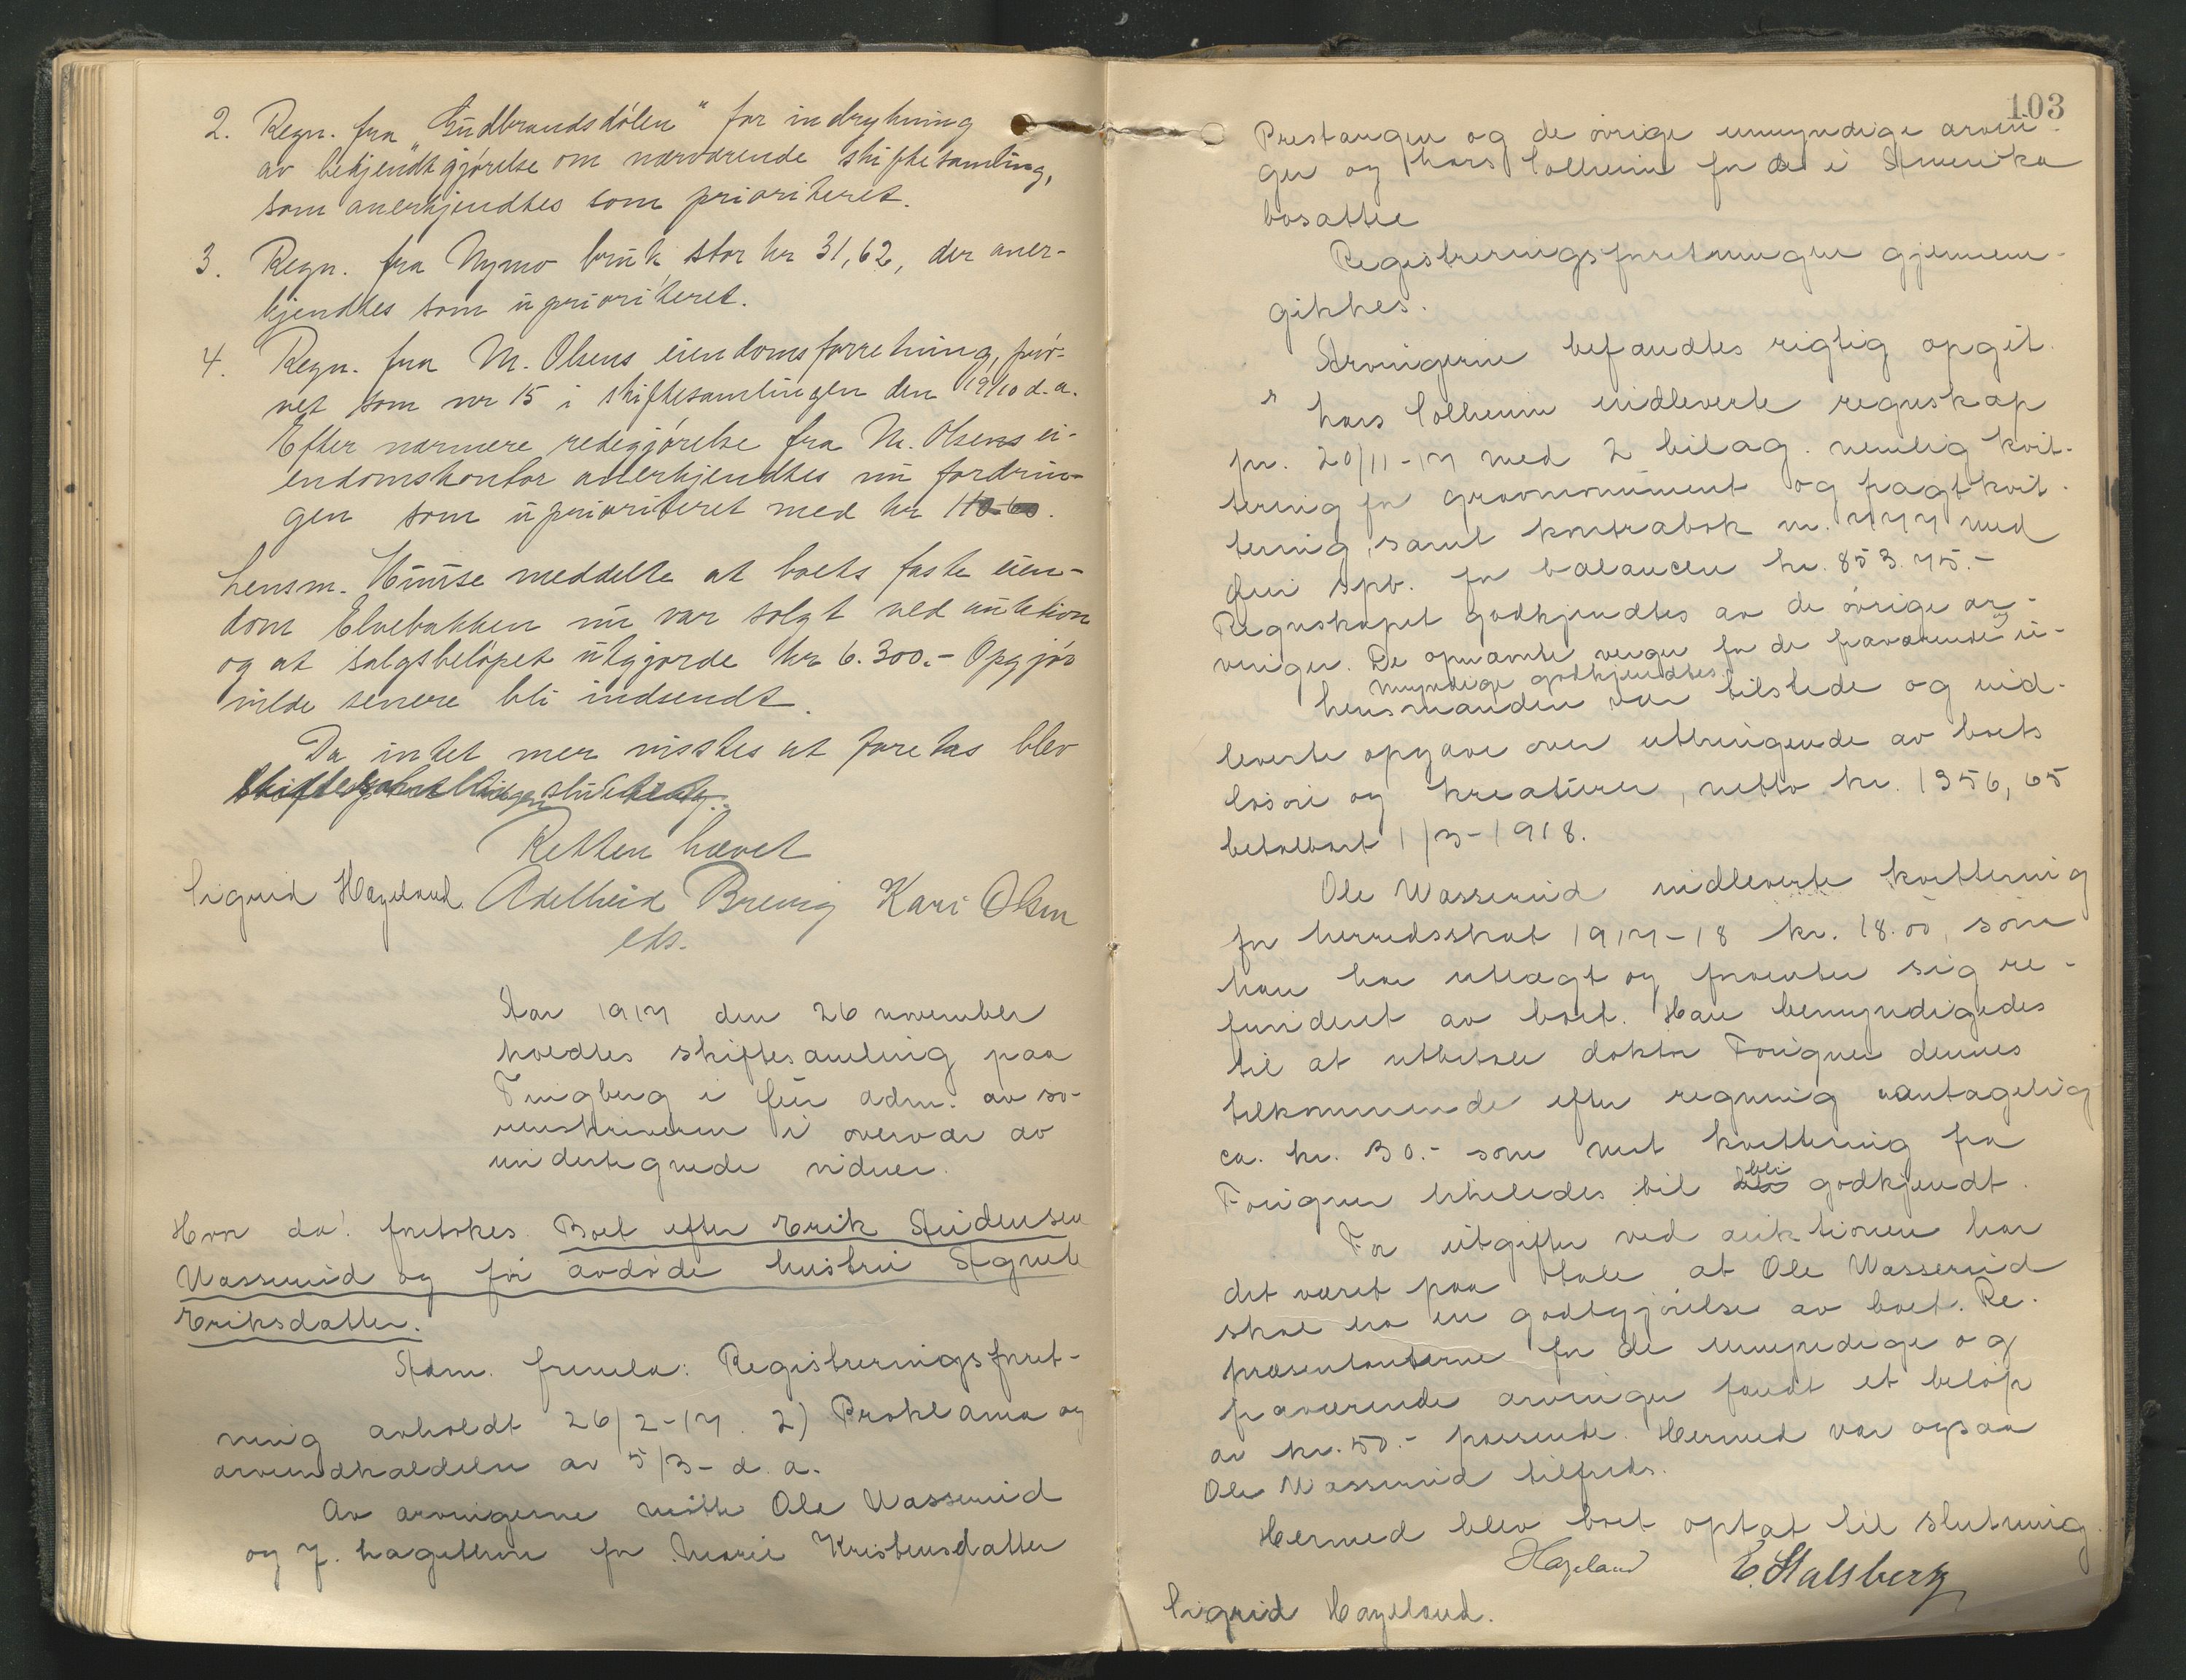 2. Regn. fra "Gudbrandsdølen" for indrykning
av bekjendtgjørelse om nærværende skiftesamling,
som anerkjendtes som prioriteret.
3. Regn. fra Nymo bruk, stor kr 31,62, der aner-
kjendtes som uprioriteret.
4. Regn. fra M. Olsens eiendomsforretning, prøv-
vet som nr 15 i skiftesamlingen den 19/10 d. a.
Efter nærmere redegjørelse fra M. Olsens ei-
endomskontor anerkjendtes nu fordrin-
gen som uprioriteret med kr
Lensm. Huuse meddelte at boets faste eien-
dom Elvebakken nu var solgt ved auktion
og at salgsbeløpet utgjorde kr 6.300.- Opgjør
vilde senere bli indsendt.
Da intet mer visstes at foretas blev
Retten hævet
Sigrid Hageland. Adelheid Brevig Kari Olsen
eds.
Aar 1917 den 26 november
holdtes skiftesamling paa
Tingberg i Øier adm. av so-
renskriveren i overvær av
undertegnede vidner.
Hvor da! foretokes Boet efter Erik Amundsen
Wasserud og før avdøde hustru Agnete
Eriksdatter.
Adm. fremla: Registreringsforret-
ning avholdt 26/2-17. 2) Proklama og
arveindkaldelse av 5/3- d. a.
Av arvingerne møtte Ole Wasserud
og J. for Marie Kristensdatter
103
Prestangen og de øvrige umyndige arvin-
ger og Lars Solheim for de i Amerika
bosatte
Registreringsforretningen gjennem-
gikkes.
Arvingerne befandtes rigtig opgit.
Lars Solheim indleverte regnskap
pr. 20/11-17 med 2 bilag. nemlig kvit-
tering for gravmonument og fragtkvit-
tering, samt kontrabok nr. 777 med
Øier Spb. for balancen kr. 853.75.-
Regnskapet godkjendtes av de øvrige ar-
vinger. De opnævnte verger for de fraværende og u-
myndige godkjendtes.
Lensmanden var tilstede og ind-
leverte opgave over utbringende av boets
løsøre og kreaturer, netto kr. 1356,65
betalbart 1/3-1918.
Ole Wasserud indleverte kvittering
for herredsskat 1917-18 kr. 18.00, som
han har utlagt og forventer sig re-
funderet av boet. Han bemyndigedes
til at utbetale doktor Forigner dennes
tilkommende efter regning antagelig
ca. kr. 30.- som mot kvittering fra
Forigner tilveiebragt vil bli godkjendt.
For utgifter ved auktionen har
det været paa tale at Ole Wasserud
skal ha en godtgjørelse av boet. Re-
præsentanterne for de umyndige og
fraværende arvinger fandt et beløp
av kr. 50.- passende. Hermed var ogsaa
Ole Wasserud tilfreds.
Hermed blev boet optat til slutning
Hageland E. Stalsberg
Sigrid Hageland.